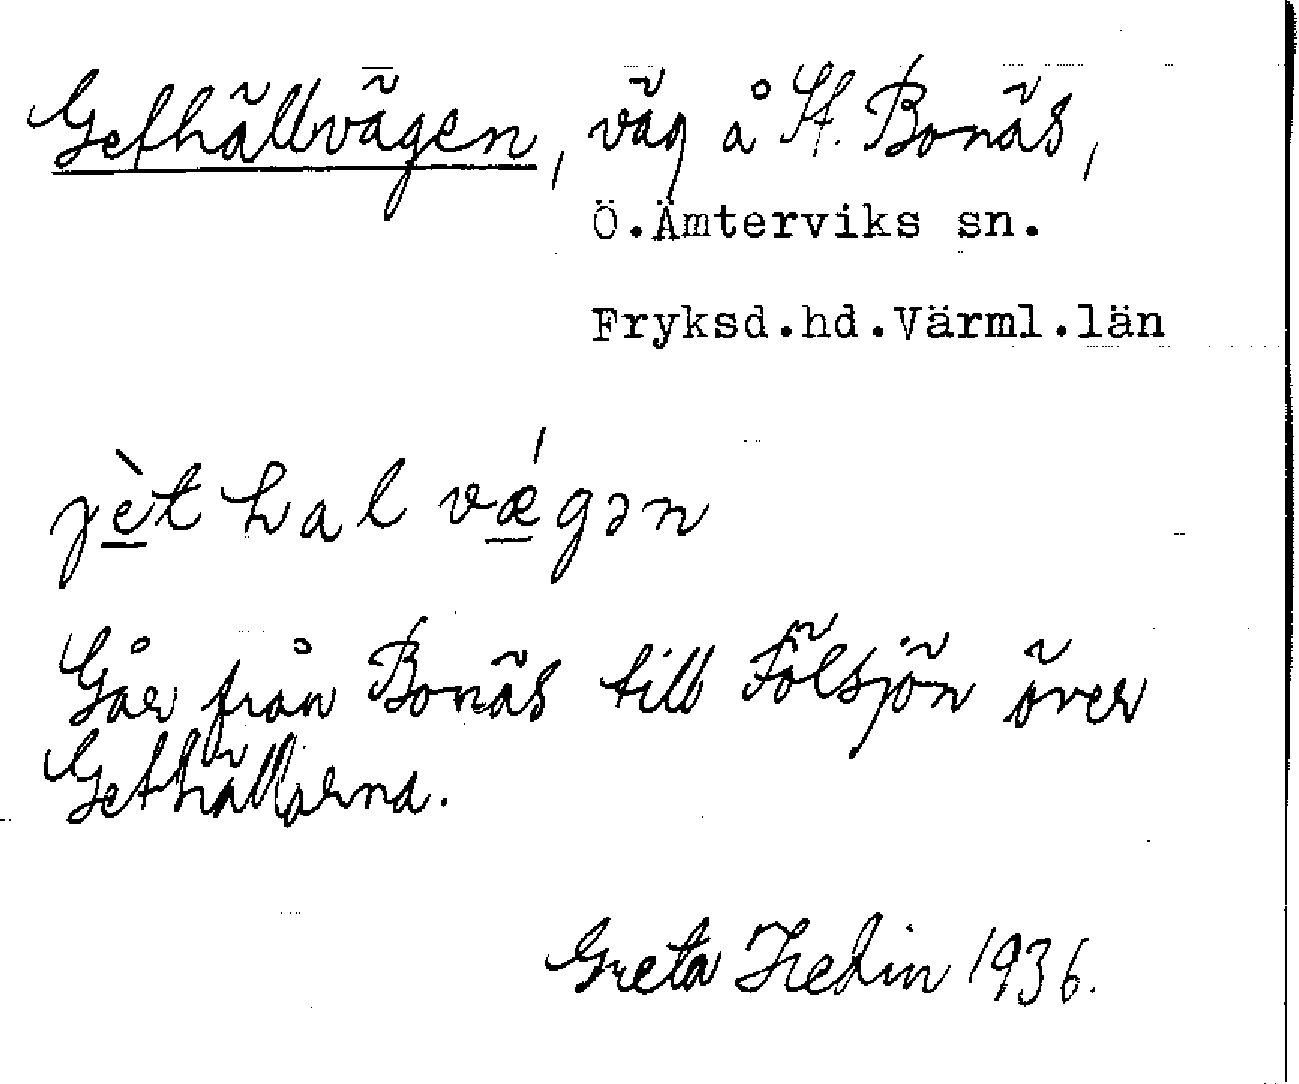 Gethällvägen, väg å St. Bonäs,
Ö.Ämterviks sn.
Fryksd.hd.Värml.län
jèt hal vǽgən
Går från Bonäs till Fölsjön över
Gethällarna.
Greta Hedin 1936.